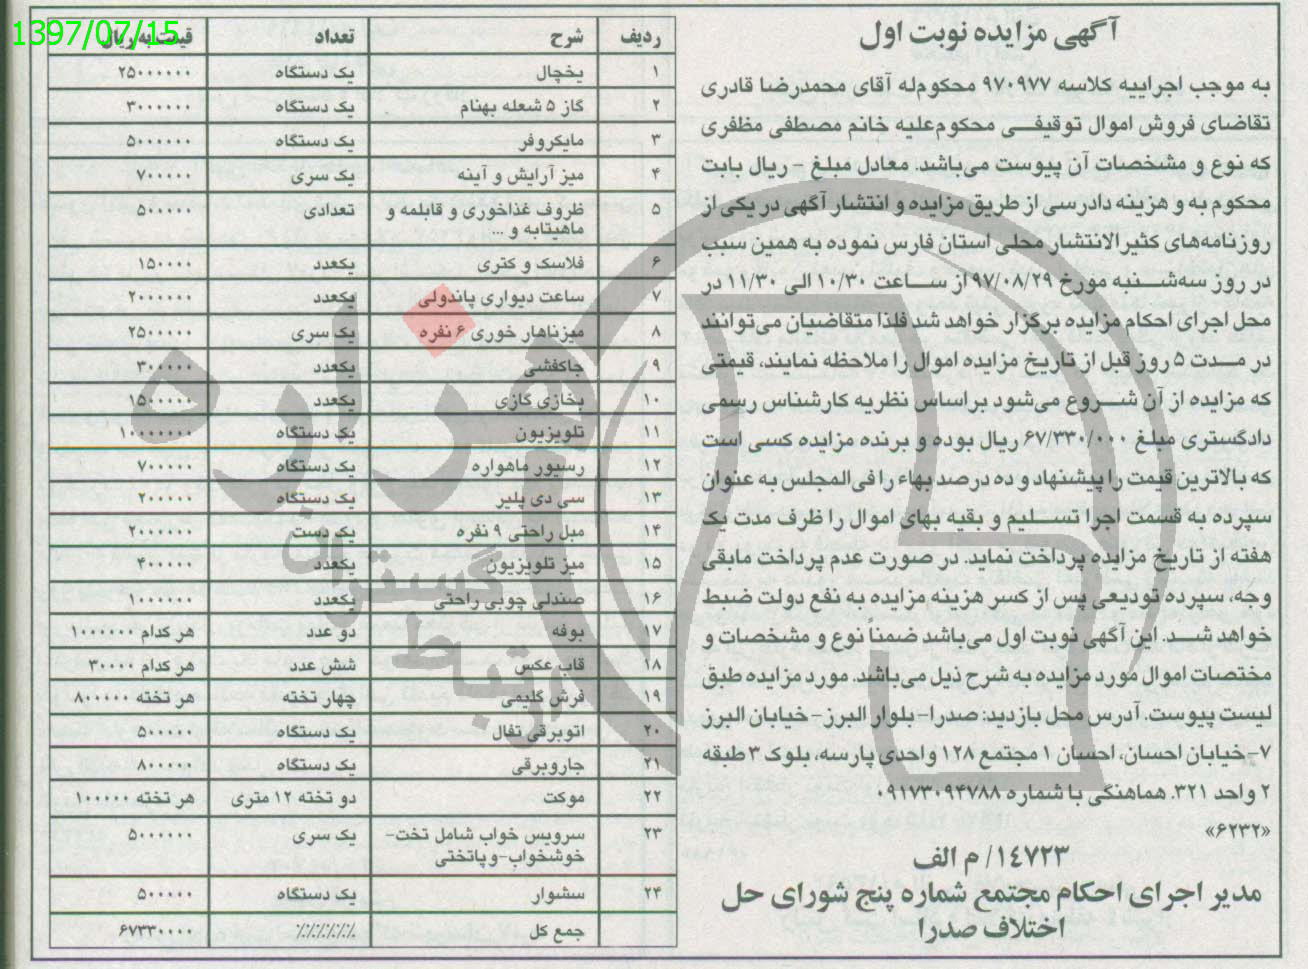 1397/07/15
آگهی مزایده نوبت اول
به موجب اجراییه کلاسه ۹۷۰۹۷۷ محکوم‌له آقای محمدرضا قادری
تقاضای فروش اموال توقیفی محکوم‌علیه خانم مصطفی مظفری
که نوع و مشخصات آن پیوست می‌باشد. معادل مبلغ - ریال بابت
محکوم به و هزینه دادرسی از طریق مزایده و انتشار آگهی در یکی از
روزنامه‌های کثیرالانتشار محلی استان فارس نموده به همین سبب
در روز سه‌شنبه مورخ ۹۷/۰۸/۲۹ از ساعت ۱۰/۳۰ الی ۱۱/۳۰ در
محل اجرای احکام مزایده برگزار خواهد شد فلذا متقاضیان می‌توانند
در مدت ۵ روز قبل از تاریخ مزایده اموال را ملاحظه نمایند، قیمتی
که مزایده از آن شروع می‌شود براساس نظریه کارشناس رسمی
دادگستری مبلغ ۶۷/۳۳۰/۰۰۰ ریال بوده و برنده مزایده کسی است
که بالاترین قیمت را پیشنهاد و ده درصد بهاء را فی‌المجلس به عنوان
سپرده به قسمت اجرا تسلیم و بقیه بهای اموال را ظرف مدت یک
هفته از تاریخ مزایده پرداخت نماید. در صورت عدم پرداخت مابقی
وجه، سپرده تودیعی پس از کسر هزینه مزایده به نفع دولت ضبط
خواهد شد. این آگهی نوبت اول می‌باشد ضمناً نوع و مشخصات و
مختصات اموال مورد مزایده به شرح ذیل می‌باشد. مورد مزایده طبق
لیست پیوست. آدرس محل بازدید: صدرا - بلوار البرز - خیابان البرز
۷- خیابان احسان، احسان ۱ مجتمع ۱۲۸ واحدی پارسه، بلوک ۳ طبقه
۲ واحد ۳۲۱. هماهنگی با شماره ۰۹۱۷۳۰۹۴۷۸۸
«۶۲۳۲»
۱۴۷۲۳/ م الف
مدیر اجرای احکام مجتمع شماره پنج شورای حل
اختلاف صدرا
ردیف شرح تعداد قیمت به ریال
۱ یخچال یک دستگاه ۲۵۰۰۰۰۰۰
۲ گاز ۵ شعله بهنام یک دستگاه ۳۰۰۰۰۰۰
۳ مایکروفر یک دستگاه ۵۰۰۰۰۰۰
۴ میز آرایش و آینه یک سری ۷۰۰۰۰۰
۵ ظروف غذاخوری و قابلمه و تعدادی ۵۰۰۰۰۰
ماهیتابه و ...
۶ فلاسک و کتری یکعدد ۱۵۰۰۰۰
۷ ساعت دیواری پاندولی یکعدد ۲۰۰۰۰۰۰
۸ میزناهار خوری ۶ نفره یک سری ۲۵۰۰۰۰۰
۹ جاکفشی یکعدد ۳۰۰۰۰۰
۱۰ بخاری گازی یکعدد ۱۵۰۰۰۰۰
۱۱ تلویزیون یک دستگاه ۱۰۰۰۰۰۰۰
۱۲ رسیور ماهواره یک دستگاه ۷۰۰۰۰۰
۱۳ سی دی پلیر یک دستگاه ۲۰۰۰۰۰
۱۴ مبل راحتی ۹ نفره یک دست ۲۰۰۰۰۰۰
۱۵ میز تلویزیون یکعدد ۴۰۰۰۰۰
۱۶ صندلی چوبی راحتی یکعدد ۱۰۰۰۰۰۰
۱۷ بوفه دو عدد هر کدام ۱۰۰۰۰۰۰
۱۸ قاب عکس شش عدد هر کدام ۳۰۰۰۰
۱۹ فرش گلیمی چهار تخته هر تخته ۸۰۰۰۰۰
۲۰ اتوبرقی تفال یک دستگاه ۵۰۰۰۰۰
۲۱ جاروبرقی یک دستگاه ۸۰۰۰۰۰
۲۲ موکت دو تخته ۱۲ متری هر تخته ۱۰۰۰۰۰
۲۳ سرویس خواب شامل تخت- یک سری ۵۰۰۰۰۰۰
خوشخواب-وپاتختی
۲۴ سشوار یک دستگاه ۵۰۰۰۰۰
جمع کل ٪٪٪٪٪٪ ۶۷۳۳۰۰۰۰
هزاره
گستران
ارتباط